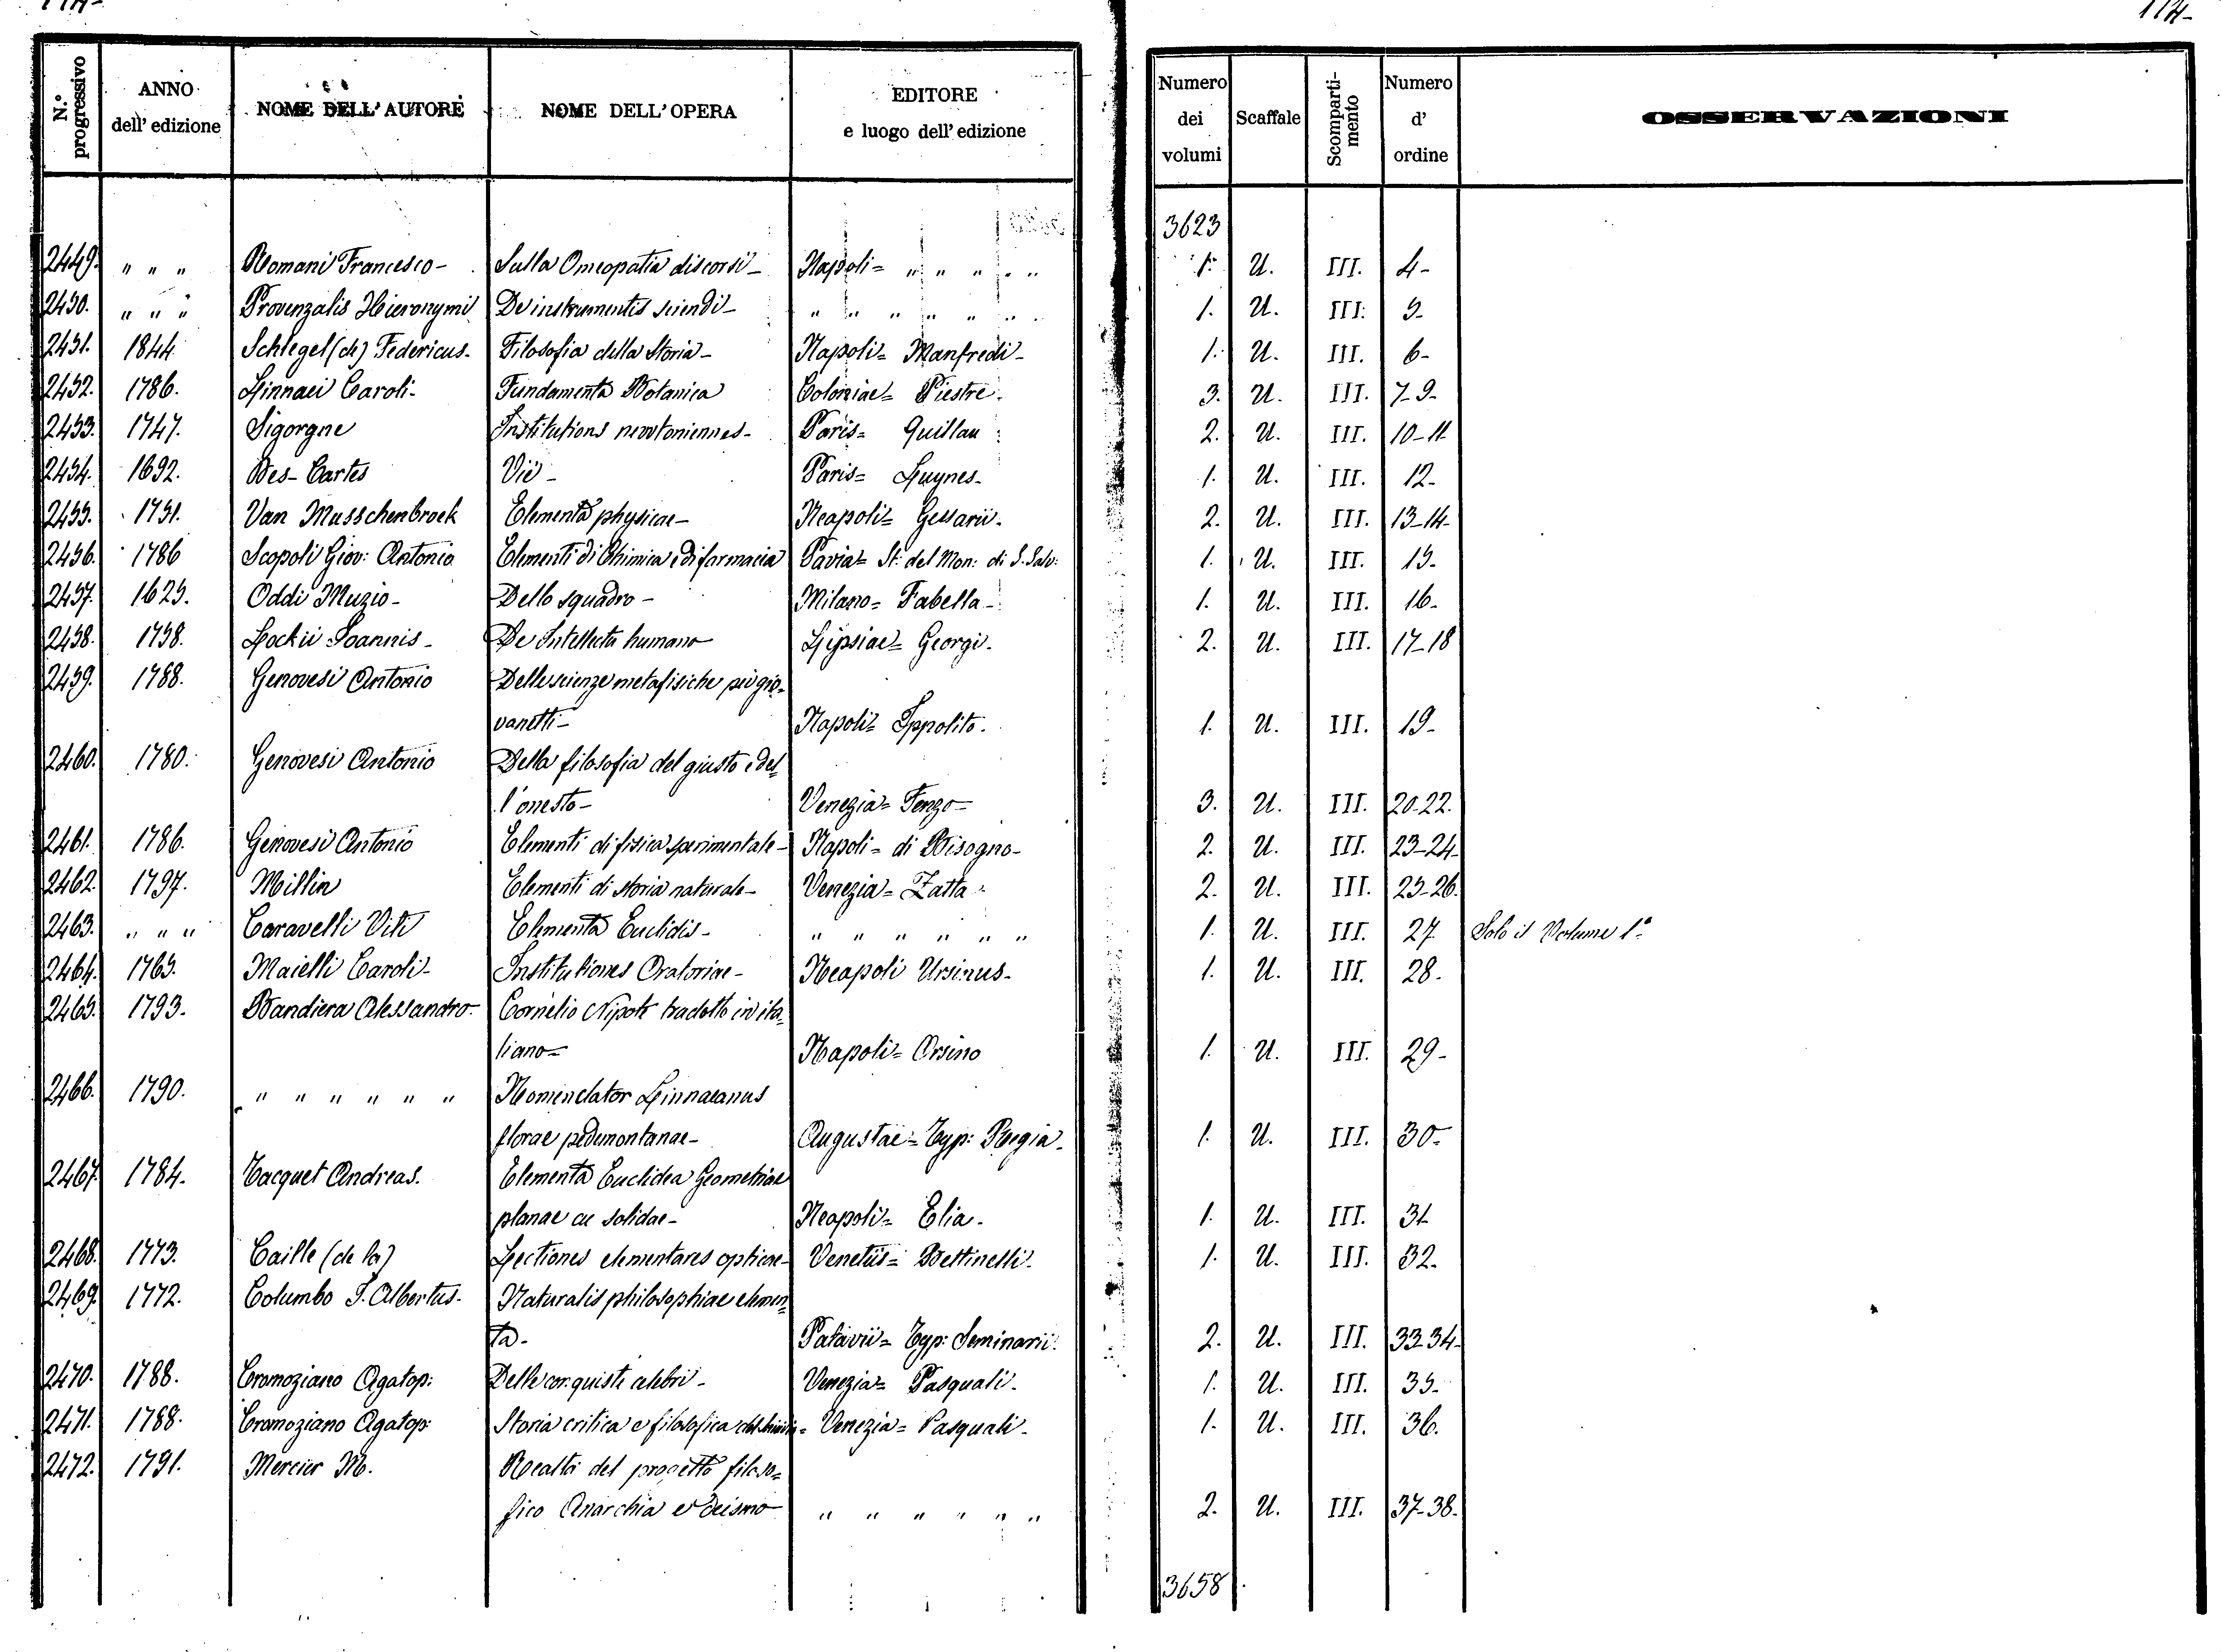 114- 114-
N.° progressivo | ANNO dell' edizione | NOME DELL' AUTORE | NOME DELL' OPERA | EDITORE e luogo dell' edizione | Numero dei volumi | Scaffale | Scomparti-mento | Numero d' ordine | OSSERVAZIONI
3623
2449. " " " Romani Francesco - Sulla Omeopatia discorsi - Napoli = " " " " " 1. U. III. 4-
2450. " " " Provenzalis Hieronymi De instrumentis sciendi - " " " " " " 1. U. III. 5-
2451. 1844 Schlegel (de) Federicus. Filosofia della Storia - Napoli = Manfredi - 1. U. III. 6-
2452. 1786. Linnaei Caroli - Fundamenta Botanica Coloniae = Piestre. 3. U. III. 7-9-
2453. 1747. Sigorgne Institutions newtoniennes - Paris = Quillau 2. U. III. 10-11-
2454. 1692. Des-Cartes Vie - Paris = Luynes - 1. U. III. 12-
2455. 1751. Van Musschenbroek Elementa physicae - Neapoli = Gessarii - 2. U. III. 13-14-
2456. 1786 Scopoli Giov: Antonio Elementi di Chimica e di farmacia Pavia = St: del Mon: di S. Salv: 1. U. III. 15-
2457. 1625. Oddi Muzio - Dello squadro - Milano = Fabella - 1. U. III. 16-
2458. 1758. Lockii Joannis - De Intellectu humano Lipsiae = Georgi. 2. U. III. 17-18
2459. 1788. Genovesi Antonio Delle scienze metafisiche pei gio=
vanetti - Napoli = Ippolito. 1. U. III. 19-
2460. 1780. Genovesi Antonio Della filosofia del giusto e del=
l'onesto - Venezia = Fenzo - 3. U. III. 20-22.
2461. 1786. Genovesi Antonio Elementi di fisica sperimentale - Napoli - di Bisogno - 2. U. III. 23-24-
2462. 1797. Millin Elementi di storia naturale - Venezia = Zatta 2. U. III. 25-26.
2463. " " " Caravelli Viti Elementa Euclidis - " " " " " " 1. U. III. 27. Solo il Volume 1°
2464. 1765. Maielli Caroli - Institutiones Oratoriae - Neapoli Ursinus - 1. U. III. 28.
2465. 1793. Bandiera Alessandro - Cornelio Nipote tradotto in ita=
liano - Napoli = Orsino 1. U. III. 29-
2466. 1790. " " " " " " Nomenclator Linnaeanus
florae pedemontanae - Augustae = Typ: Regia - 1. U. III. 30-
2467. 1784. Tacquet Andreas. Elementa Euclidea Geometriae
planae ac solidae - Neapoli = Elia - 1. U. III. 31-
2468. 1773. Caille (de la) Lectiones elementares opticae - Venetiis = Bettinelli - 1. U. III. 32.
2469. 1772. Columbo J. Albertus. Naturalis philosophiae elemen=
ta - Patavii = Typ: Seminarii. 2. U. III. 33-34-
2470. 1788. Cromoziano Agatop: Delle conquiste celebri - Venezia = Pasquali - 1. U. III. 35-
2471. 1788. Cromoziano Agatop: Storia critica e filosofica del - Venezia = Pasquali - 1. U. III. 36.
2472. 1791. Mercier M. Realtà del progetto filoso=
fico Anarchia e Deismo " " " " " " 2. U. III. 37-38-
3658